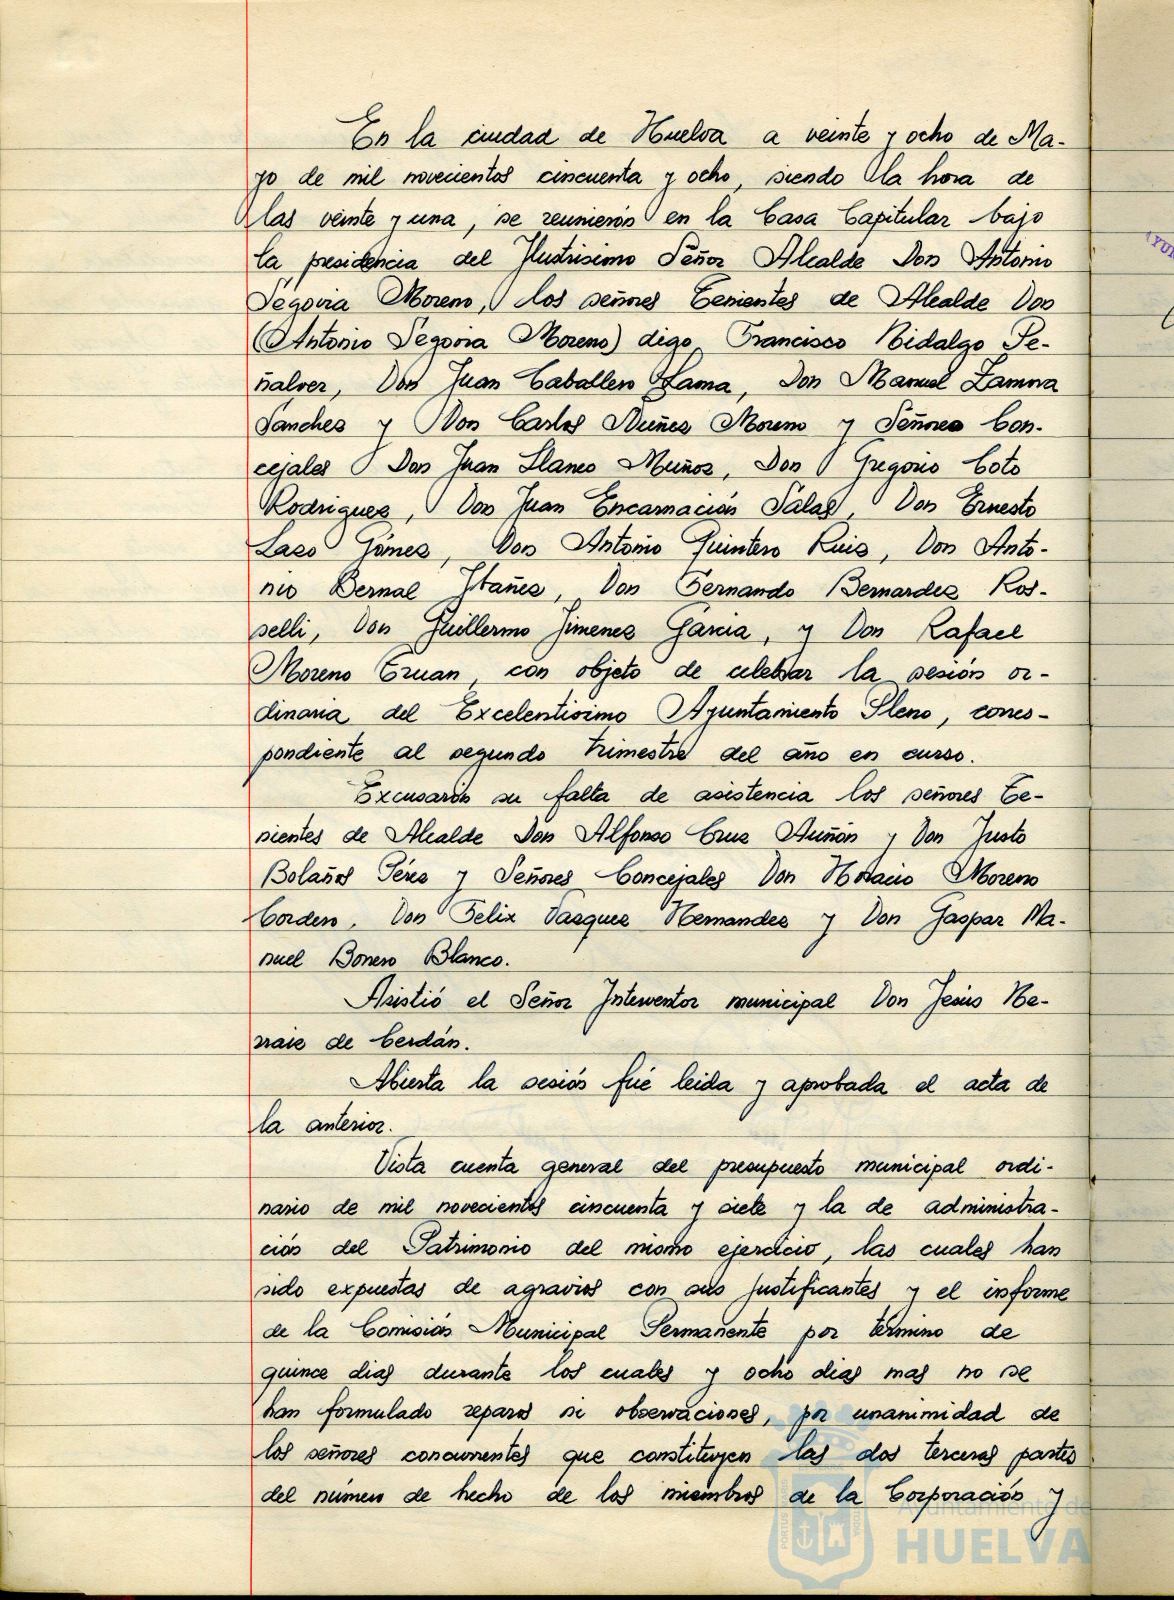 En la ciudad de Huelva a veinte y ocho de Ma-
yo de mil novecientos cincuenta y ocho, siendo la hora de
las veinte y una, se reunieron en la Casa Capitular bajo
la presidencia del Ilustrisimo Señor Alcalde Don Antonio
Segovia Moreno, los señores Tenientes de Alcalde Don
(Antonio Segovia Moreno) digo Francisco Hidalgo Pe-
ñalver, Don Juan Caballero Lama, Don Manuel Zamora
Sanchez y Don Carlos Nuñez Moreno y Señores Con-
cejales Don Juan Llanes Muñoz, Don Gregorio Coto
Rodriguez, Don Juan Encarnación Salas, Don Ernesto
Lazo Gómez, Don Antonio Quintero Ruiz, Don Anto-
nio Bernal Ibañez, Don Fernando Bernardez Ros-
selli, Don Guillermo Jimenez Garcia, y Don Rafael
Moreno Eruan, con objeto de celebrar la sesión or-
dinaria del Excelentisimo Ayuntamiento Pleno, corres-
pondiente al segundo trimestre del año en curso.
Excusaron su falta de asistencia los señores Te-
nientes de Alcalde Don Alfonso Cruz Auñón y Don Justo
Bolaños Pérez y Señores Concejales Don Horacio Moreno
Cordero, Don Felix Vasquez Hernandez y Don Gaspar Ma-
nuel Bonero Blanco.
Asistió el Señor Interventor municipal Don Jesús He-
rraiz de Cerdán.
Abierta la sesión fué leida y aprobada el acta de
la anterior.
Vista cuenta general del presupuesto municipal ordi-
nario de mil novecientos cincuenta y siete y la de administra-
ción del Patrimonio del mismo ejercicio, las cuales han
sido expuestas de agravios con sus justificantes y el informe
de la Comisión Municipal Permanente por término de
quince dias durante los cuales y ocho dias mas no se
han formulado reparos ni observaciones, por unanimidad de
los señores concurrentes que constituyen las dos terceras partes
del número de hecho de los miembros de la Corporación y
Ayuntamiento de
HUELVA